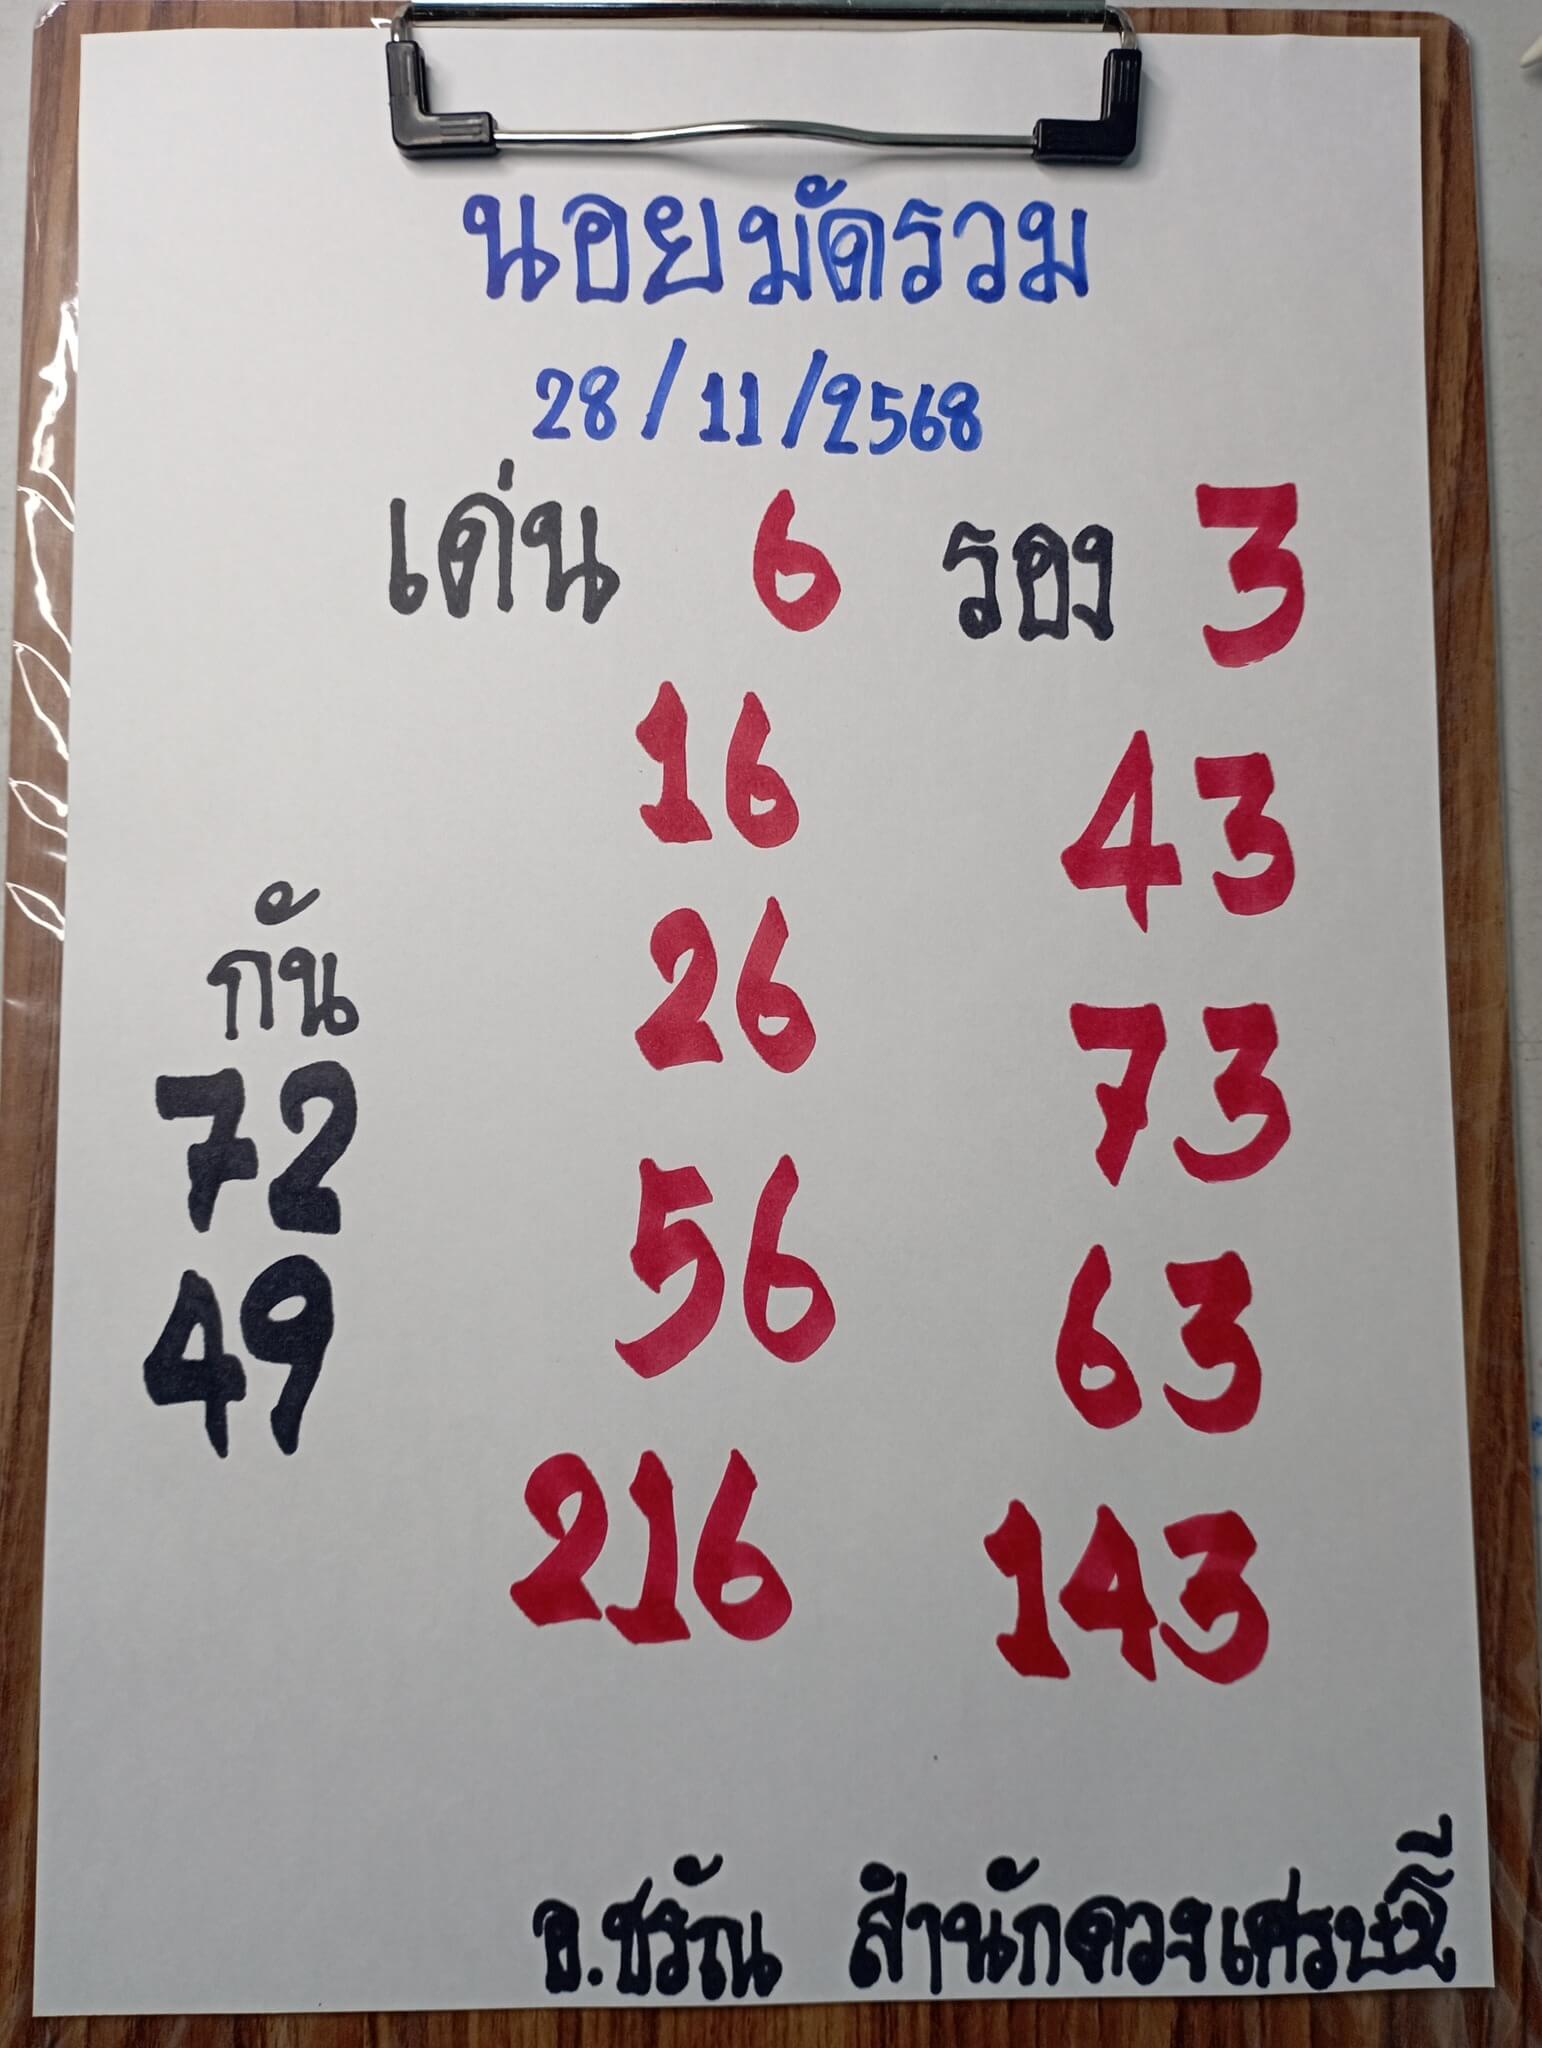 นอยมัดรวม
28/11/2568
เด่น 6 รอง 3
16 43
26 73
กัน
72
49
56 63
216 143
อ.ชรัณ สำนักดวงเศรษฐี